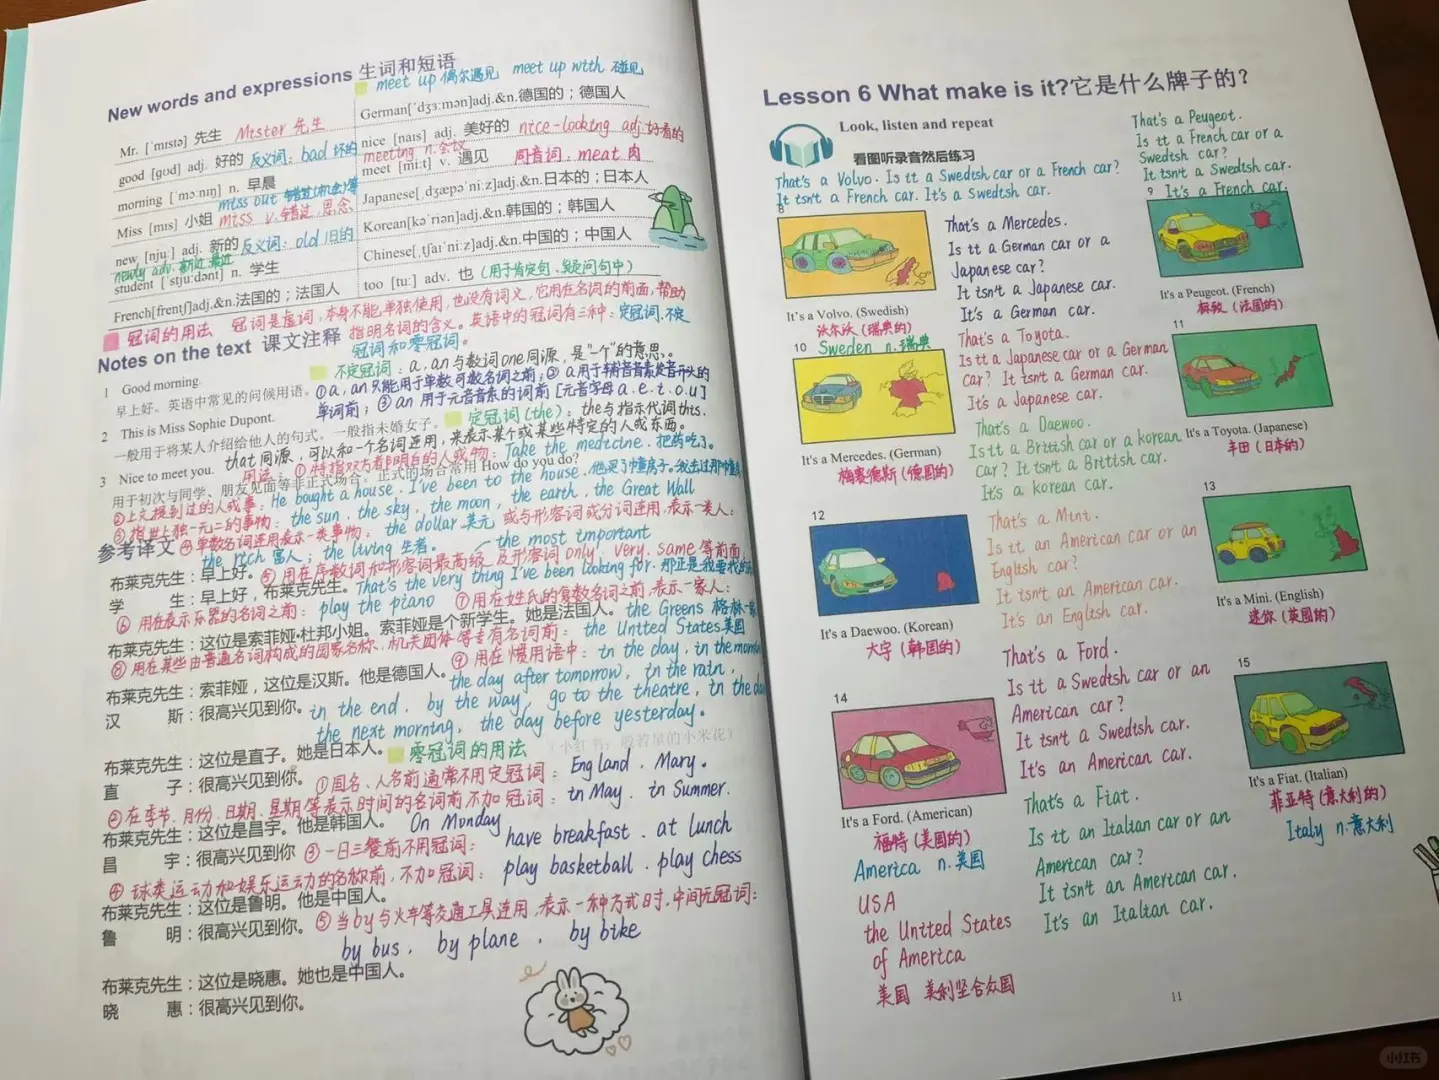 New words and expressions 生词和短语
meet up 偶尔遇见 meet up with 碰见
Mr. [ˈmɪstə] 先生 Mister 先生
good [gʊd] adj. 好的 反义词: bad 坏的
morning [ˈmɔːnɪŋ] n. 早晨
miss out 错过(机会)等
Miss [mɪs] 小姐 miss v. 错过, 思念
new [njuː] adj. 新的 反义词: old 旧的
newly adv. 新近 最近
student [ˈstjuːdənt] n. 学生
French[frentʃ]adj.&n.法国的；法国人
German[ˈdʒɜːmən]adj.&n.德国的；德国人
nice [naɪs] adj. 美好的 nice-looking adj.好看的
meeting n.会议
meet [miːt] v. 遇见 同音词: meat 肉
Japanese[ˌdʒæpəˈniːz]adj.&n.日本的；日本人
Korean[kəˈrɪən]adj.&n.韩国的；韩国人
Chinese[ˌtʃaɪˈniːz]adj.&n.中国的；中国人
too [tuː] adv. 也 (用于肯定句、疑问句中)
冠词的用法 冠词是虚词,本身不能单独使用,也没有词义,它用在名词的前面,帮助
指明名词的含义。英语中的冠词有三种: 定冠词、不定
冠词和零冠词。
Notes on the text 课文注释
不定冠词: a, an与数词one同源, 是"一个"的意思。
1 Good morning.
早上好。英语中常见的问候用语。
①a, an只能用于单数可数名词之前; ②a用于辅音音素发音开头的
单词前; ③an 用于元音音素的词前 [元音字母a.e.i.o.u]
2 This is Miss Sophie Dupont.
一般用于将某人介绍给他人的句式。一般指未婚女子。
定冠词(the): the与指示代词this.
that同源, 可以和一个名词连用, 来表示某个或某些特定的人或东西。
3 Nice to meet you.
用于初次与同学、朋友见面等非正式场合。正式的场合常用 How do you do?
用法: ①特指双方都明白的人或物: Take the medicine. 把药吃了。
②上文提到过的人或事: He bought a house. I've been to the house.
③指世上独一无二的事物: the sun, the sky, the moon, the earth, the Great Wall
④单数名词连用表示一类事物: the dollar 美元 或与形容词或分词连用,表示一类人:
the rich 富人; the living 生者。
参考译文
the most important
⑤用在序数词和形容词最高级 及形容词only, very, same等前面
That's the very thing I've been looking for.
⑥用在表示乐器的名词之前: play the piano
⑦用在姓氏的复数名词之前,表示一家人: the Greens
⑧用在某些由普通名词构成的国家名称、机关团体等专有名词前: the United States美国
⑨用在惯用语中: in the day, in the morning
the day after tomorrow, in the rain,
in the end, by the way, go to the theatre,
the next morning, the day before yesterday。
布莱克先生：早上好。
学 生：早上好，布莱克先生。
布莱克先生：这位是索菲娅·杜邦小姐。索菲娅是个新学生。她是法国人。
布莱克先生：索菲娅，这位是汉斯。他是德国人。
汉 斯：很高兴见到你。
布莱克先生：这位是直子。她是日本人。
直 子：很高兴见到你。
布莱克先生：这位是昌宇。他是韩国人。
昌 宇：很高兴见到你
布莱克先生：这位是鲁明。他是中国人。
鲁 明：很高兴见到你。
布莱克先生：这位是晓惠。她也是中国人。
晓 惠：很高兴见到你。
零冠词的用法
①国名、人名前通常不用定冠词: England, Mary。
②在季节、月份、日期、星期等表示时间的名词前不加冠词: in May, in Summer.
On Monday
③一日三餐前不用冠词: have breakfast, at lunch
④球类运动和娱乐运动的名称前,不加冠词: play basketball. play chess
⑤当by与火车等交通工具连用,表示一种方式时,中间无冠词:
by bus, by plane, by bike
Lesson 6 What make is it?它是什么牌子的？
Look, listen and repeat
看图听录音然后练习
That's a Volvo. Is it a Swedish car or a French car?
It isn't a French car. It's a Swedish car.
8
It's a Volvo. (Swedish)
沃尔沃 (瑞典的)
Sweden n.瑞典
That's a Peugeot.
Is it a French car or a
Swedish car?
It isn't a Swedish car.
It's a French car.
9
It's a Peugeot. (French)
标致 (法国的)
That's a Mercedes.
Is it a German car or a
Japanese car?
It isn't a Japanese car.
It's a German car.
10
It's a Mercedes. (German)
梅赛德斯 (德国的)
That's a Toyota.
Is it a Japanese car or a German
car? It isn't a German car.
It's a Japanese car.
11
It's a Toyota. (Japanese)
丰田 (日本的)
That's a Daewoo.
Is it a British car or a korean
car? It isn't a British car.
It's a korean car.
12
It's a Daewoo. (Korean)
大宇 (韩国的)
That's a Mini.
Is it an American car or an
English car?
It isn't an American car.
It's an English car.
13
It's a Mini. (English)
迷你 (英国的)
That's a Ford.
Is it a Swedish car or an
American car?
It isn't a Swedish car.
It's an American car.
14
It's a Ford. (American)
福特 (美国的)
America n.美国
USA
the United States
of America
美国 美利坚合众国
That's a Fiat.
Is it an Italian car or an
American car?
It isn't an American car.
It's an Italian car.
15
It's a Fiat. (Italian)
菲亚特 (意大利的)
Italy n.意大利
11
小红书